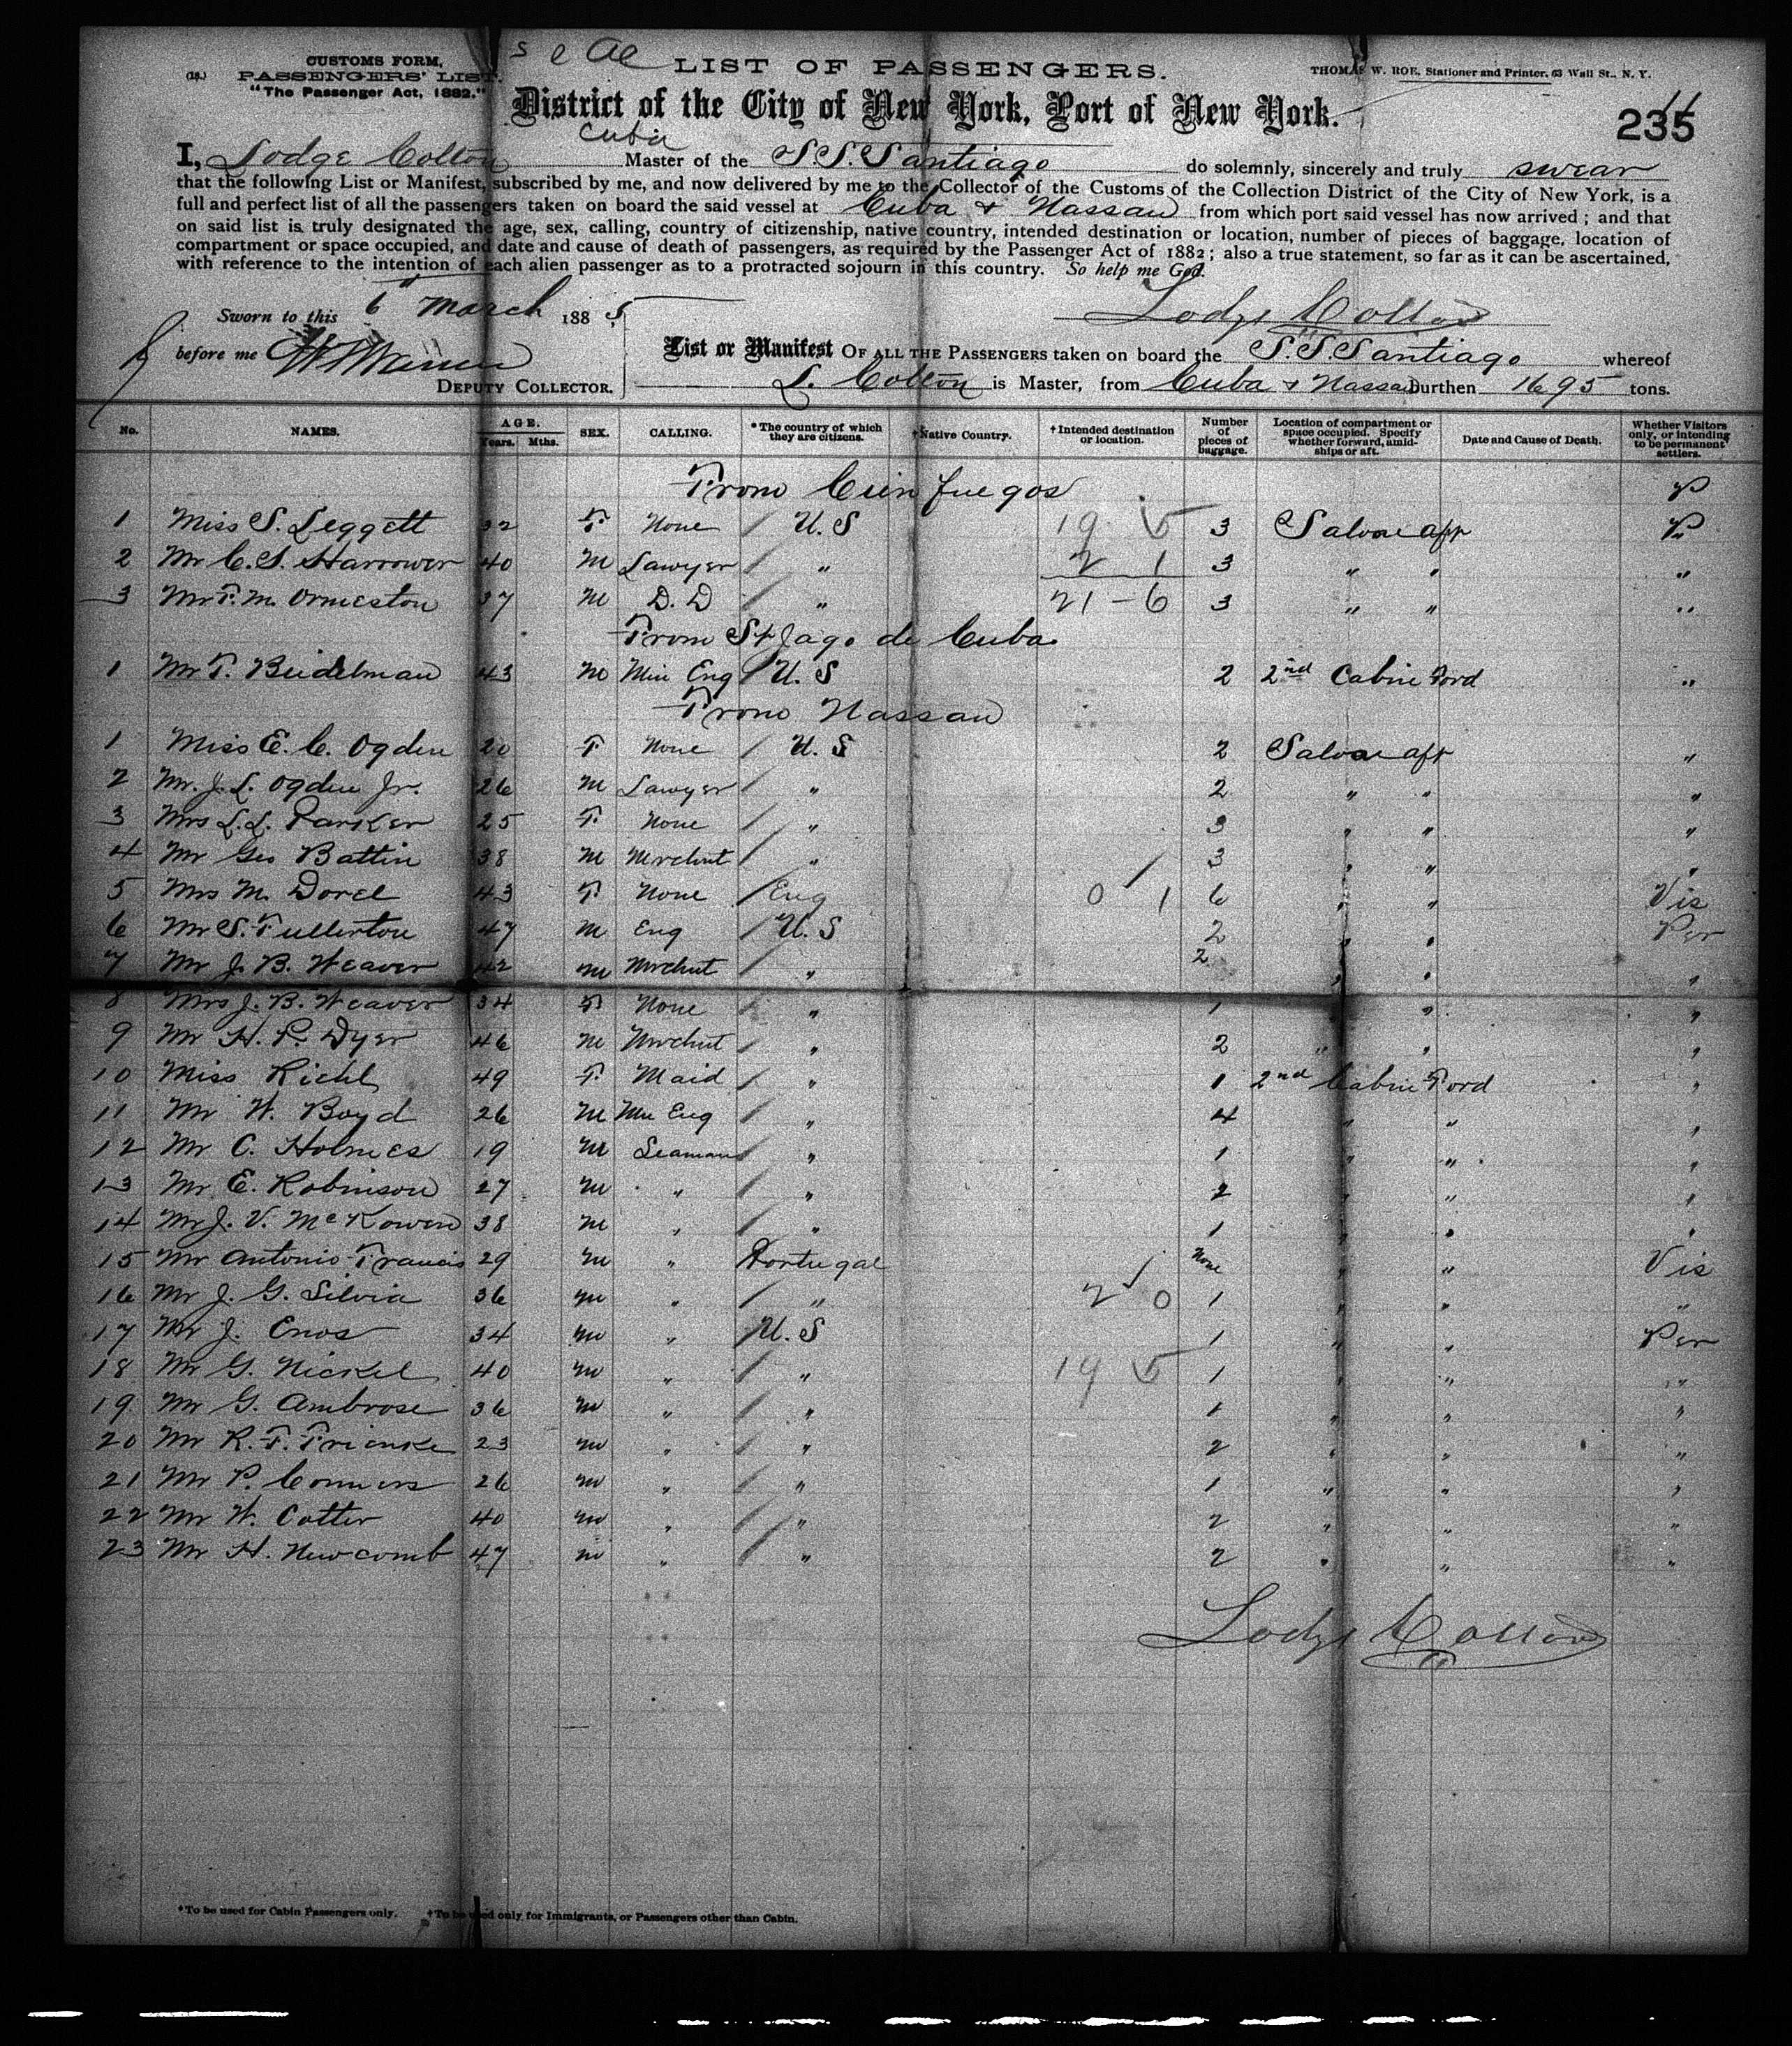 CUSTOMS FORM,
(18.) PASSENGERS' LIST.
"The Passenger Act, 1882."
LIST OF PASSENGERS.
THOMAS W. ROE, Stationer and Printer, 63 Wall St., N. Y.
District of the City of New York, Port of New York.
235
Cuba
I, Lodge Colton Master of the S.S. Santiago do solemnly, sincerely and truly swear
that the following List or Manifest, subscribed by me, and now delivered by me to the Collector of the Customs of the Collection District of the City of New York, is a
full and perfect list of all the passengers taken on board the said vessel at Cuba & Nassau from which port said vessel has now arrived; and that
on said list is truly designated the age, sex, calling, country of citizenship, native country, intended destination or location, number of pieces of baggage, location of
compartment or space occupied, and date and cause of death of passengers, as required by the Passenger Act of 1882; also a true statement, so far as it can be ascertained,
with reference to the intention of each alien passenger as to a protracted sojourn in this country. So help me God.
Sworn to this 6 March 1885
Lodge Colton
before me
DEPUTY COLLECTOR.
List or Manifest OF ALL THE PASSENGERS taken on board the S.S. Santiago whereof
L. Colton is Master, from Cuba & Nassau burthen 1695 tons.
No. NAMES. AGE. Years. Mths. SEX. CALLING. *The country of which they are citizens. †Native Country. †Intended destination or location. Number of pieces of baggage. Location of compartment or space occupied. Specify whether forward, amidships or aft. Date and Cause of Death. Whether Visitors only, or intending to be permanent settlers.
From Cienfuegos
1 Miss S. Leggett 32 F None / U.S 19 5 3 Saloon aft P
2 Mr C. S. Harrower 40 M Lawyer / " 2 1 3 " " "
3 Mr F. M. Ormeston 37 M D.D / " 21-6 3 " " "
From St Jago de Cuba
1 Mr F. Beidelman 43 M Min Eng / U.S 2 2nd Cabin Ford "
From Nassau
1 Miss E. C. Ogden 20 F None / U.S 2 Saloon aft "
2 Mr. J. L. Ogden Jr. 26 M Lawyer / " 2 " " "
3 Mrs L. L. Parker 25 F None / " 3 " " "
4 Mr Geo Battin 38 M Mrchnt / " 3 " " "
5 Mrs M. Dorel 43 F None / Eng 0 1 6 " " Vis
6 Mr S. Fullerton 47 M Eng / U.S 2 " " Per
7 Mr J. B. Weaver 42 M Mrchnt / " 2 " " "
8 Mrs J. B. Weaver 34 F None / " 1 " "
9 Mr H. P. Dyer 46 M Mrchnt / " 2 " " "
10 Miss Riehl 49 F Maid / " 1 2nd Cabin Ford "
11 Mr W. Boyd 26 M Mn Eng / " 4 " " "
12 Mr C. Holmes 19 M Seaman / " 1 " " "
13 Mr E. Robinson 27 M " / " 2 " " "
14 Mr J. V. McKowen 38 M " / " 1 " " "
15 Mr Antonio Francis 29 M " Portugal None " " Vis
16 Mr J. G. Silvia 36 M " / " 2 0 1 " " "
17 Mr J. Enos 34 M " / U.S 1 " " Per
18 Mr G. Nickel 40 M " / " 19 5 1 " " "
19 Mr G. Ambrose 36 M " / " 1 " " "
20 Mr R. F. Frienke 23 M " / " 2 " " "
21 Mr P. Conners 26 M " / " 1 " " "
22 Mr W. Cotter 40 M " / " 2 " " "
23 Mr H. Newcomb 47 M " / " 2 " " "
Lodge Colton
*To be used for Cabin Passengers only. †To be used only for Immigrants, or Passengers other than Cabin.